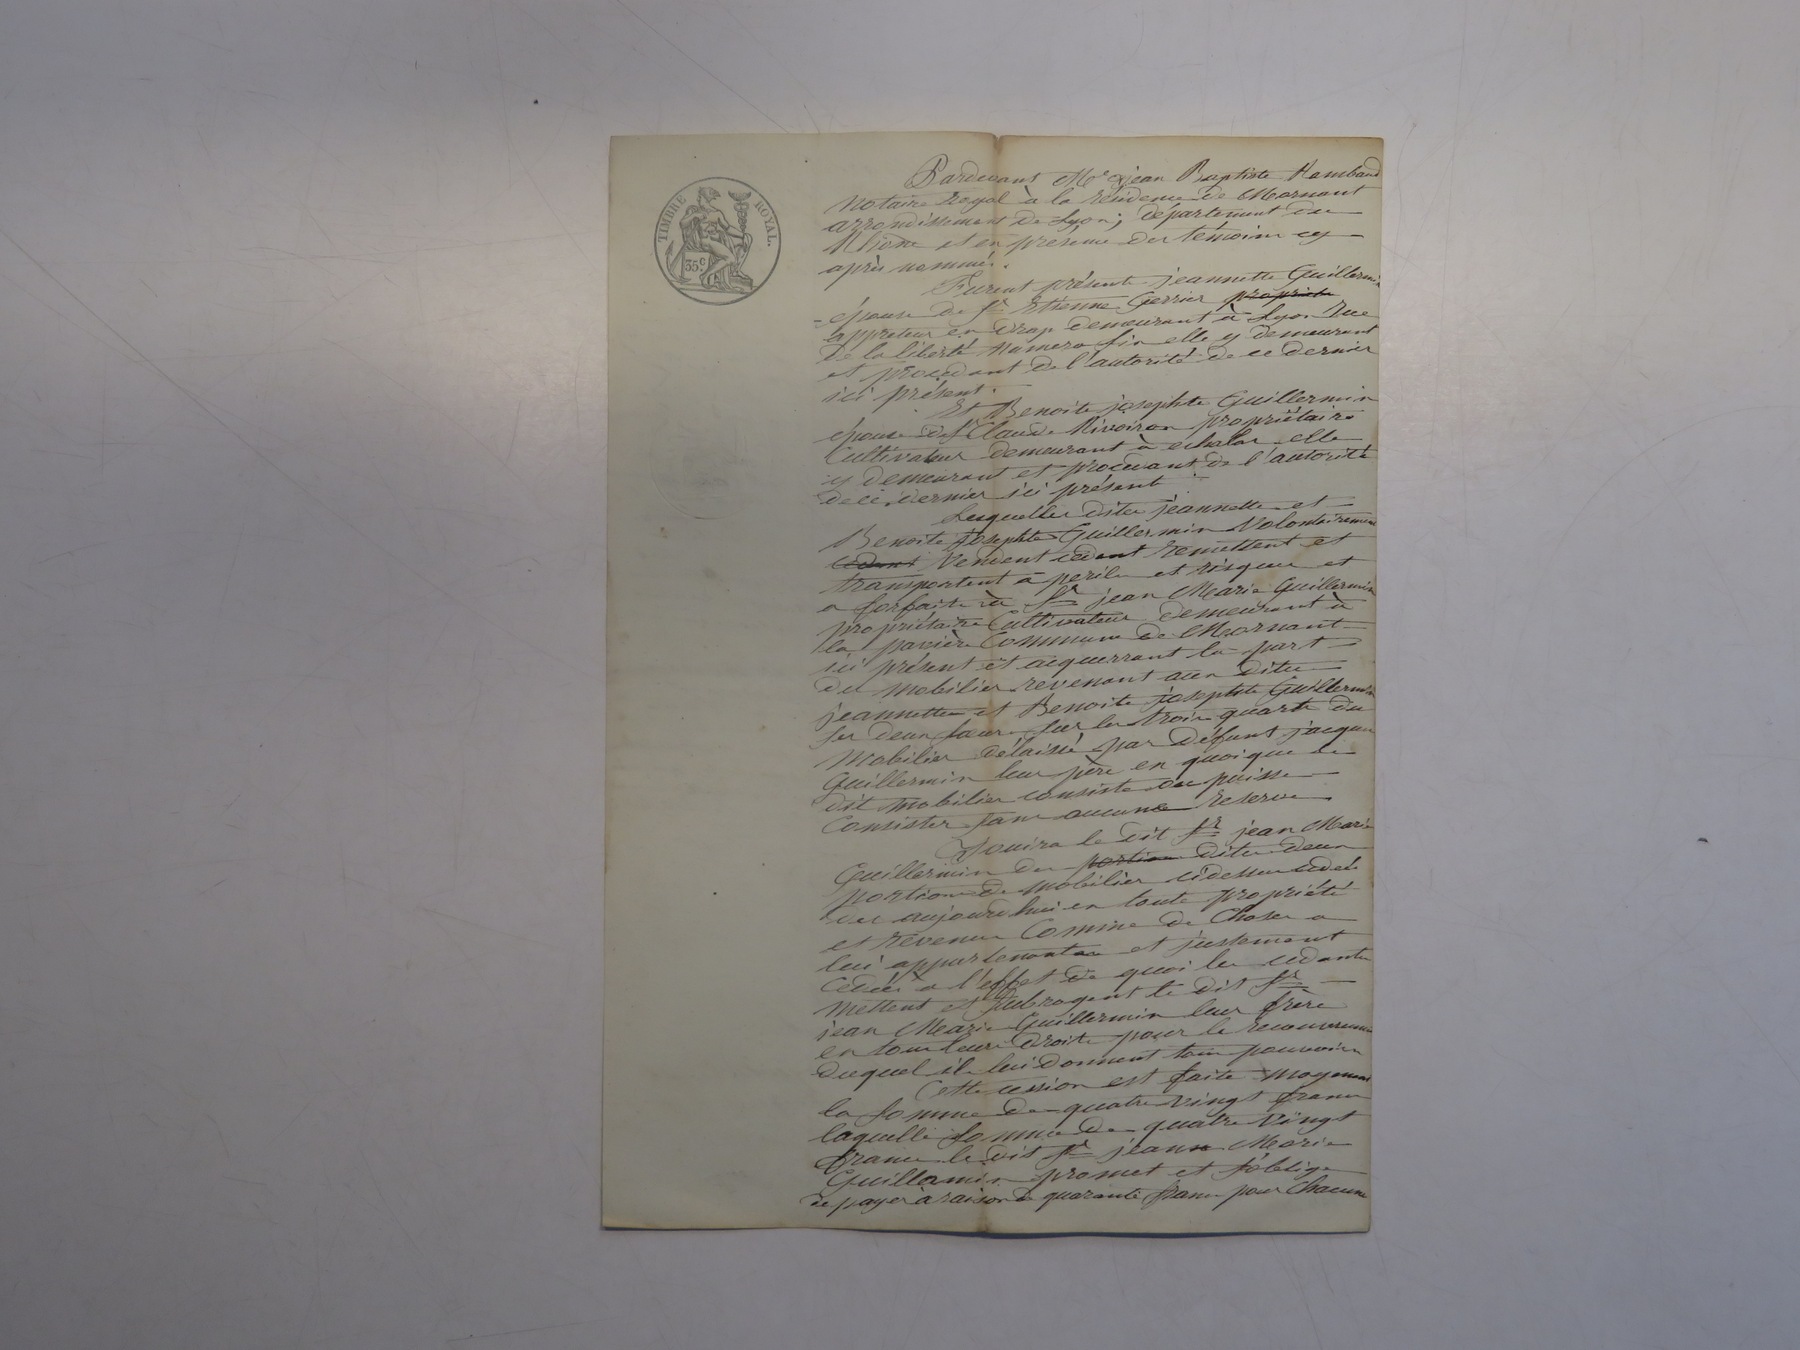 TIMBRE ROYAL.
35c
Pardevant Me jean Baptiste Rambaud
Notaire Royal à la résidence de Mornant
arrondissement de Lyon; département du
Rhone et en présence des témoins cy
après nommés.
Furent présents jeannette Guillermin
épouse de Sr Etienne Gerrier proprieta
appreteur en drap demeurant à Lyon Rue
de la liberté Numero six elle y demeurant
et procedant de l'autorité de ce dernier
ici présent.
Et Benoite josephte Guillermin
épouse de Sr Claude Rivoiron propriétaire
Cultivateur demeurant à echalas elle
y demeurant et procedant de l'autorité
de ce dernier ici présent
Lesquelles dites jeannette et
Benoite josephte Guillermin Volontairement
cedent Vendent cedent remettent et
transportent a perils et risques et
a forfait à Sr jean Marie Guillermin
propriétaire Cultivateur demeurant à
la Commune de Mornant
ici présent et acquerrant la part
du Mobilier revenant aux dites
jeannette et Benoite josephte Guillermin
ses deux sœurs sur les trois quarts du
Mobilier délaissé par défunt jacques
Guillermin leur père en quoique le
dit Mobilier consiste ou puisse
Consister sans aucune reserve
Jouira le dit Sr jean Marie
Guillermin des portions dites deux
portions de Mobilier cidessus cedés
des aujourdhui en toute propriété
et revenus Comme de Choses a
lui appartenantes et justement
Cedées à l'effet de quoi les cedantes
Mettent et Subrogent le dit Sr
jean Marie Guillermin leur frère
en tous leurs droits pour le recouvrement
duquel ils lui donnent tous pouvoirs
Cette cession est faite Moyennant
la Somme de quatre Vingt francs
laquelle Somme de quatre Vingt
francs le dit Sr jean Marie
Guillermin promet et S'oblige
de payer à raison de quarante francs pour Chacune